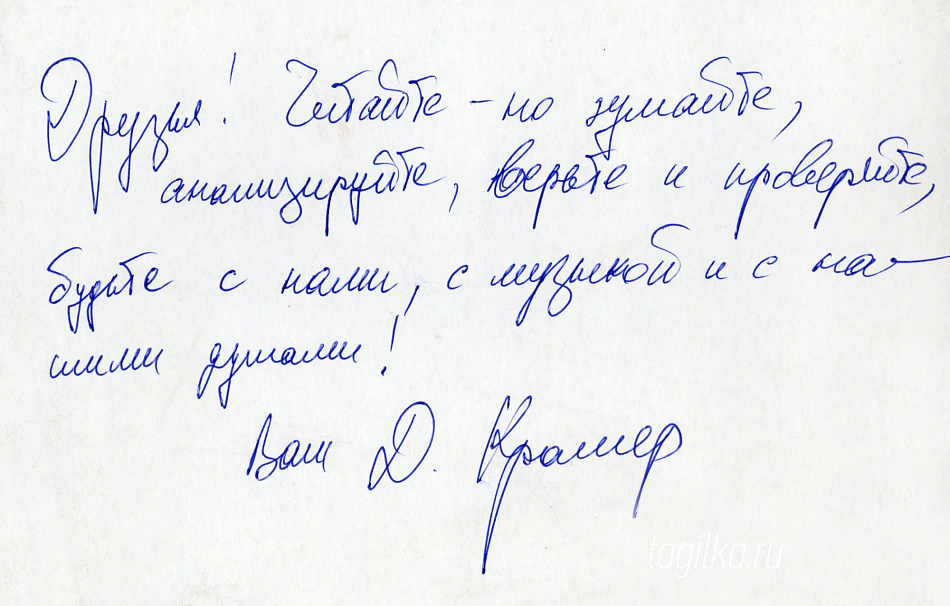 Друзья! Читайте - но думайте,
анализируйте, верьте и проверяйте,
будьте с нами, с музыкой и с на-
шими душами!
Ваш Д. Крамер
tagilka.ru